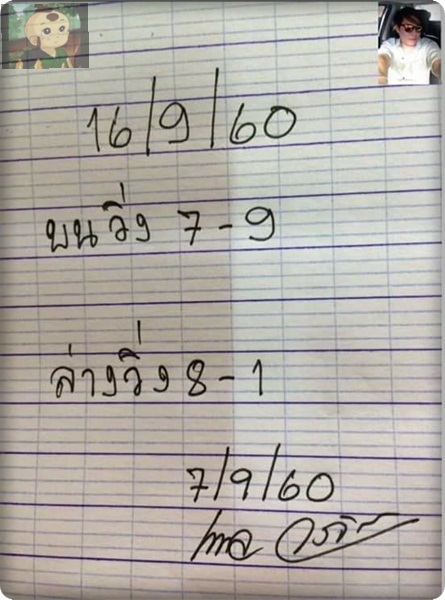 16/9/60
บนวิ่ง 7-9
ล่างวิ่ง 8-1
7/9/60